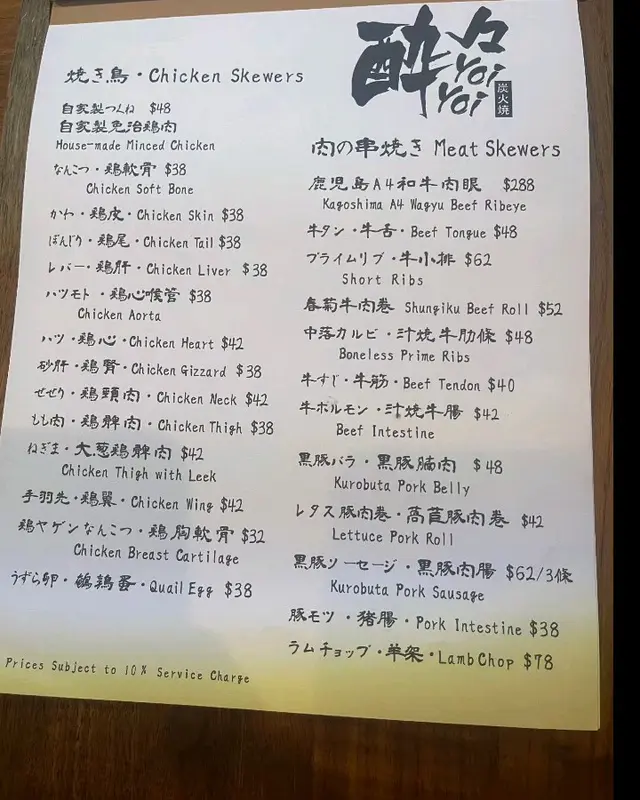 焼き鳥・Chicken Skewers
自家製つくね $48
自家製免治鶏肉
House-made Minced Chicken
なんこつ・鶏軟骨 $38
Chicken Soft Bone
かわ・鶏皮・Chicken Skin $38
ぼんじり・鶏尾・Chicken Tail $38
レバー・鶏肝・Chicken Liver $38
ハツモト・鶏心喉管 $38
Chicken Aorta
ハツ・鶏心・Chicken Heart $42
砂肝・鶏腎・Chicken Gizzard $38
せせり・鶏頸肉・Chicken Neck $42
もも肉・鶏髀肉・Chicken Thigh $38
ねぎま・大葱鶏髀肉 $42
Chicken Thigh with Leek
手羽先・鶏翼・Chicken Wing $42
鶏ヤゲンなんこつ・鶏胸軟骨 $32
Chicken Breast Cartilage
うずら卵・鵪鶉蛋・Quail Egg $38
Prices Subject to 10% Service Charge
酔々
Yoi
Yoi
炭火焼
肉の串焼き Meat Skewers
鹿児島A4和牛肉眼 $288
Kagoshima A4 Wagyu Beef Ribeye
牛タン・牛舌・Beef Tongue $48
プライムリブ・牛小排 $62
Short Ribs
春菊牛肉巻 Shungiku Beef Roll $52
中落カルビ・汁焼牛肋條 $48
Boneless Prime Ribs
牛すじ・牛筋・Beef Tendon $40
牛ホルモン・汁焼牛腸 $42
Beef Intestine
黒豚バラ・黒豚腩肉 $48
Kurobuta Pork Belly
レタス豚肉巻・萵苣豚肉巻 $42
Lettuce Pork Roll
黒豚ソーセージ・黒豚肉腸 $62/3條
Kurobuta Pork Sausage
豚モツ・猪腸・Pork Intestine $38
ラムチョップ・羊架・Lamb Chop $78